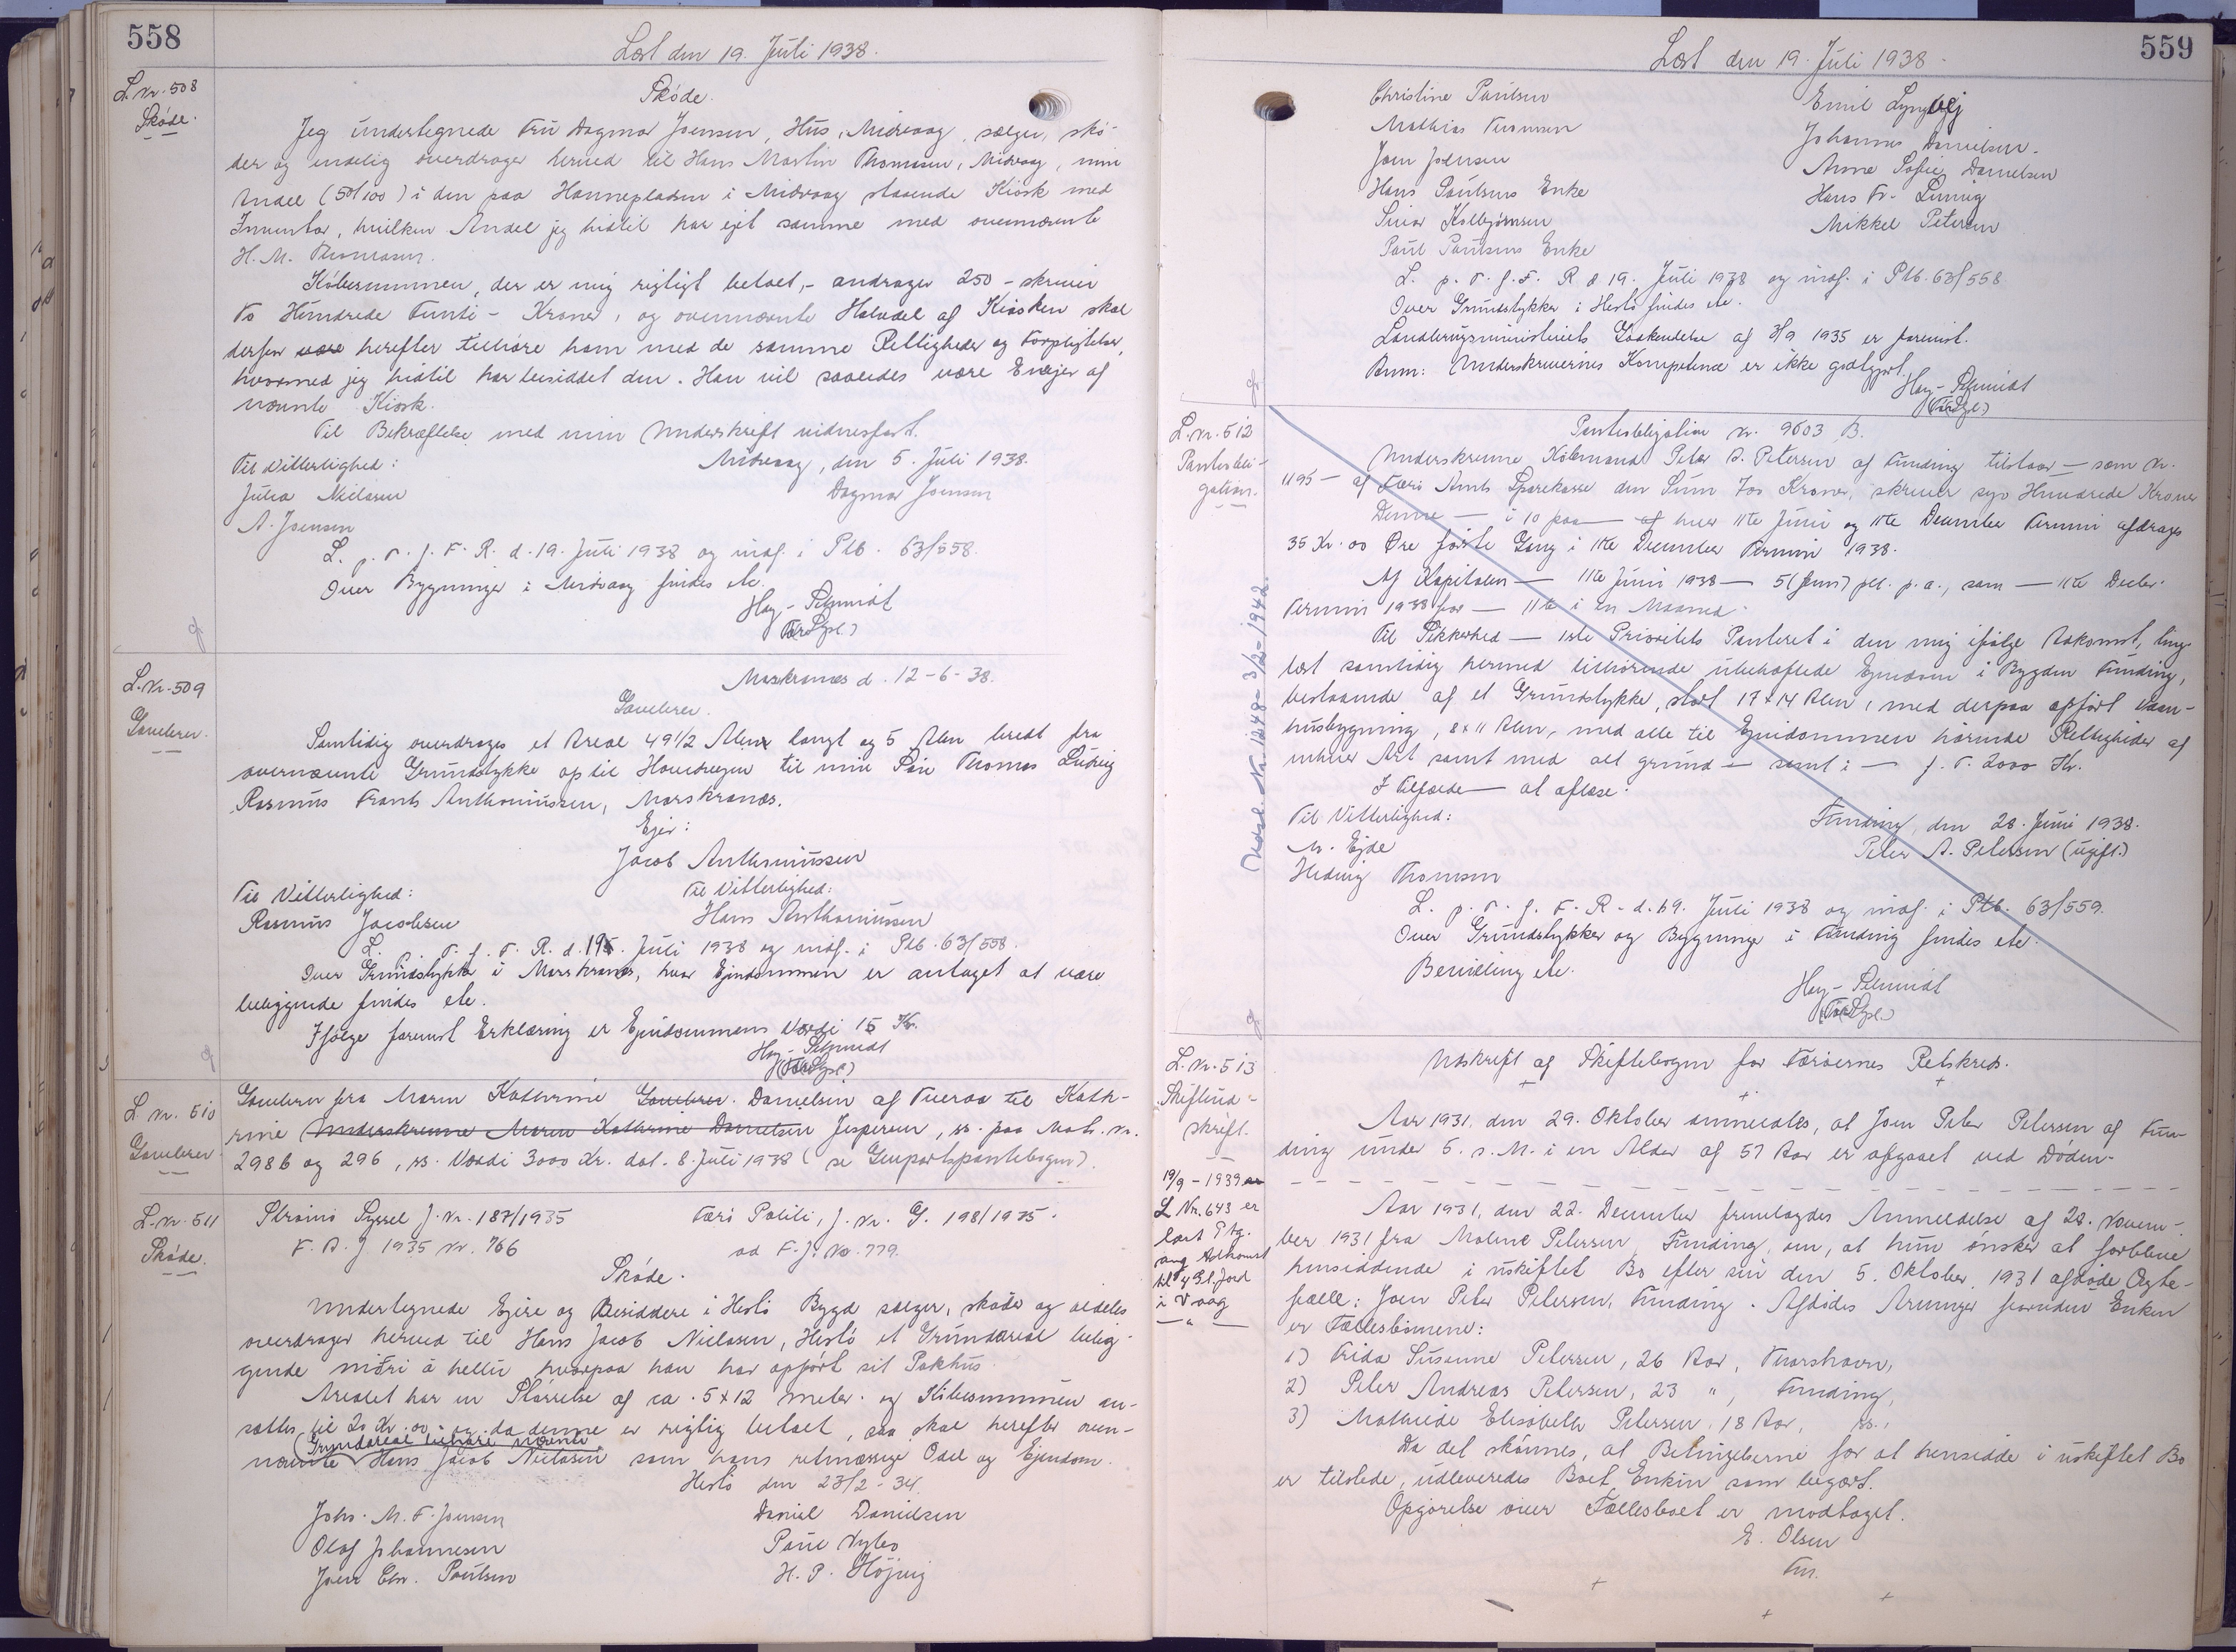 558
Læst den 19. Juli 1938.
L. Nr. 508
Skøde.
Skøde.
Jeg undertegnede Fru Dagmar Joensen, Hus, Midvaag, sælger, skø-
der og endelig overdrager herved til Hans Martin Thomasen, Midvaag, min
Andel (50/100) i den paa Havnepladsen i Midvaag staaende Kiosk med
Inventar, hvilken Andel jeg hidtil har ejet sammen med ovennævnte
H. M. Thomasen.
Købesummen, der er mig rigtigt betalt, - andrager 250 - skriver
To Hundrede Funti - Kroner, og ovennævnte Halvdel af Kiosken skal
derfor være herefter tilhøre ham med de samme Rettigheder og Forpligtelser,
hvormed jeg hidtil har besiddet den. Han vil saaledes være Eneejer af
nævnte Kiosk.
Til Bekræftelse med min Underskrift vidnesfast.
Midvaag, den 5. Juli 1938.
Til Vitterlighed:
Julia Nielsen
Dagmar Joensen
A. Joensen
L. p. T. f. F. R. d. 19. Juli 1938 og indf. i Ptb. 63/558.
Over Bygninger i Midvaag findes etc.
Høy-Schmidt
(Fær. Spl.)
L. Nr. 509
Gavebrev.
Morskranes d. 12-6-38.
Gavebrev.
Samtidig overdrages et Areal 49 1/2 Alen langt og 5 Alen bredt fra
ovennævnte Grundstykke op til Hovedvejen til min Søn Thomas Ludvig
Rasmus Frants Anthoniussen, Morskranes.
Ejer:
Jacob Anthoniussen
Til Vitterlighed:
Til Vitterlighed:
Rasmus Jacobsen
Hans Anthoniussen
L. p. T. f. F. R. d. 19. Juli 1938 og indf. i Ptb. 63/558.
Over Grundstykke i Morskranes, hvor Ejendommen er antaget at være
beliggende findes etc.
Ifølge forevist Erklæring er Ejendommens Værdi 15 Kr.
Høy-Schmidt
(Fær. Spl.)
L. Nr. 510
Gavebrev
Gavebrev fra Maren Kathrine Gavebrev. Danielsen af Tveraa til Kath-
rine Underskrevne Maren Kathrine Danielsen Jespersen, ss. paa Matr. Nr.
298b og 296, ss. Værdi 3000 Kr. dat. 8. Juli 1938 (se Genpartspantebogen).
L. Nr. 511
Skøde.
Strømø Syssel J. Nr. 187/1935
Færø Politi, J. Nr. G. 198/1935.
F. A. J. 1935 Nr. 766
ad F. J. No. 779.
Skøde.
Undertegnede Ejere og Besiddere i Hestø Bygd sælger, skøder og aldeles
overdrager herved til Hans Jacob Nielsen, Hestø et Grundareal belig-
gende niðri á helliu hvorpaa han har opført sit Pakhus.
Arealet har en Størrelse af ca. 5 x 12 Meter og Købesummen an-
sættes til 20 Kr. 00 - og da denne er rigtig betalt, saa skal herefter oven-
Grundareal tilhøre nævnte
nævnte Hans Jacob Nielsen som hans retmæssige Odel og Ejendom.
Hestø den 23/2 - 34.
Johs. M. F. Joensen
Daniel Danielsen
Olaf Johannesen
Poul Nybo
Joen Chr. Poulsen
H. P. Højvig
559
Læst den 19. Juli 1938.
Christine Poulsen
Emil Lyngvej
Mathias Thomsen
Johannes Danielsen.
Joen Joensen
Anne Sofie Danielsen
Hans Poulsens Enke
Hans Fr.
Sivar Kolbjørnsen
Mikkel Petersen
Poul Poulsens Enke
L. p. T. f. F. R. d 19. Juli 1938 og indf. i Ptb. 63/558.
Over Grundstykker i Hestø findes etc.
Landbrugsministeriets Godkendelse af 3/9 1935 er forevist.
Anm: Underskrivernes Kompetence er ikke godtgjort.
Høy-Schmidt
(Fær. Spl.)
L. Nr. 512
Pantobli-
gation.
Pantobligation Nr. 9603 B.
Underskrevne Købmand Peter A. Petersen af Funding tilstaar — som Nr.
1195 — af Færø Amts Sparekasse den Sum 700 Kroner, skriver syv Hundrede Kroner
Denne — i 10 paa — af hver 11te Juni og 11te December Termin afdrages
35 Kr. 00 Øre første Gang i 11te December Termin 1938.
Af Kapitalen — 11te Juni 1938 — 5 (fem) pCt. p. a., som — 11te Decbr.
Termin 1938 for — 11te i en Maaned.
Til Sikkerhed — 1ste Prioritets Panteret i den mig ifølge Adkomst, ting-
læst samtidig hermed tilhørende ubehæftede Ejendom i Bygden Funding,
bestaaende af et Grundstykke, stort 17 x 14 Alen, med derpaa opført Vaan-
husbygning, 8 x 11 Alen, med alle til Ejendommen hørende Rettigheder af
enhver Art samt med alt grund — samt i — f. T. 2000 Kr.
I Tilfælde — at aflæse.
Til Vitterlighed:
Funding, den 28. Juni 1938.
M. Ejde
Peter A. Petersen (ugift.)
Heding Thomsen
L. p. T. f. F. R. d. 19. Juli 1938 og indf. i Ptb. 63/559.
Over Grundstykker og Bygninger i Funding findes etc.
Bevilling etc.
Høy-Schmidt
(Fær. Spl.)
Udsl. No. 1248 - 3/12-1942.
L. Nr. 513
Skifteud-
skrift.
Udskrift af Skiftebogen for Færøernes Retskreds.
Aar 1931, den 29. Oktober anmeldtes, at Joen Peter Petersen af Fun-
ding under 5. s. M. i en Alder af 57 Aar er afgaaet ved Døden.
19/9 - 1939 
L. Nr. 643 er
læst Ptg.
ang Adkomst
til 4 Gl. Jord
i Vaag
Aar 1931, den 22. December fremlagdes Anmeldelse af 28. Novem-
ber 1931 fra Malene Petersen, Funding, om, at hun ønsker at forblive
hensiddende i uskiftet Bo efter sin den 5. Oktober 1931 afdøde Ægte-
fælle: Joen Peter Petersen, Funding. Afdødes Arvinger foruden Enken
er Fællesbørnene:
1) Frida Susanne Petersen, 26 Aar, Thorshavn,
2) Peter Andreas Petersen, 23 ", Funding,
3) Mathilde Elisabeth Petersen, 18 Aar, ss.,
Da det skønnes, at Betingelserne for at hensidde i uskiftet Bo
er tilstede, udleveredes Boet Enken som begært.
Opgørelse over Fællesboet er modtaget.
E. Olsen
Fm.